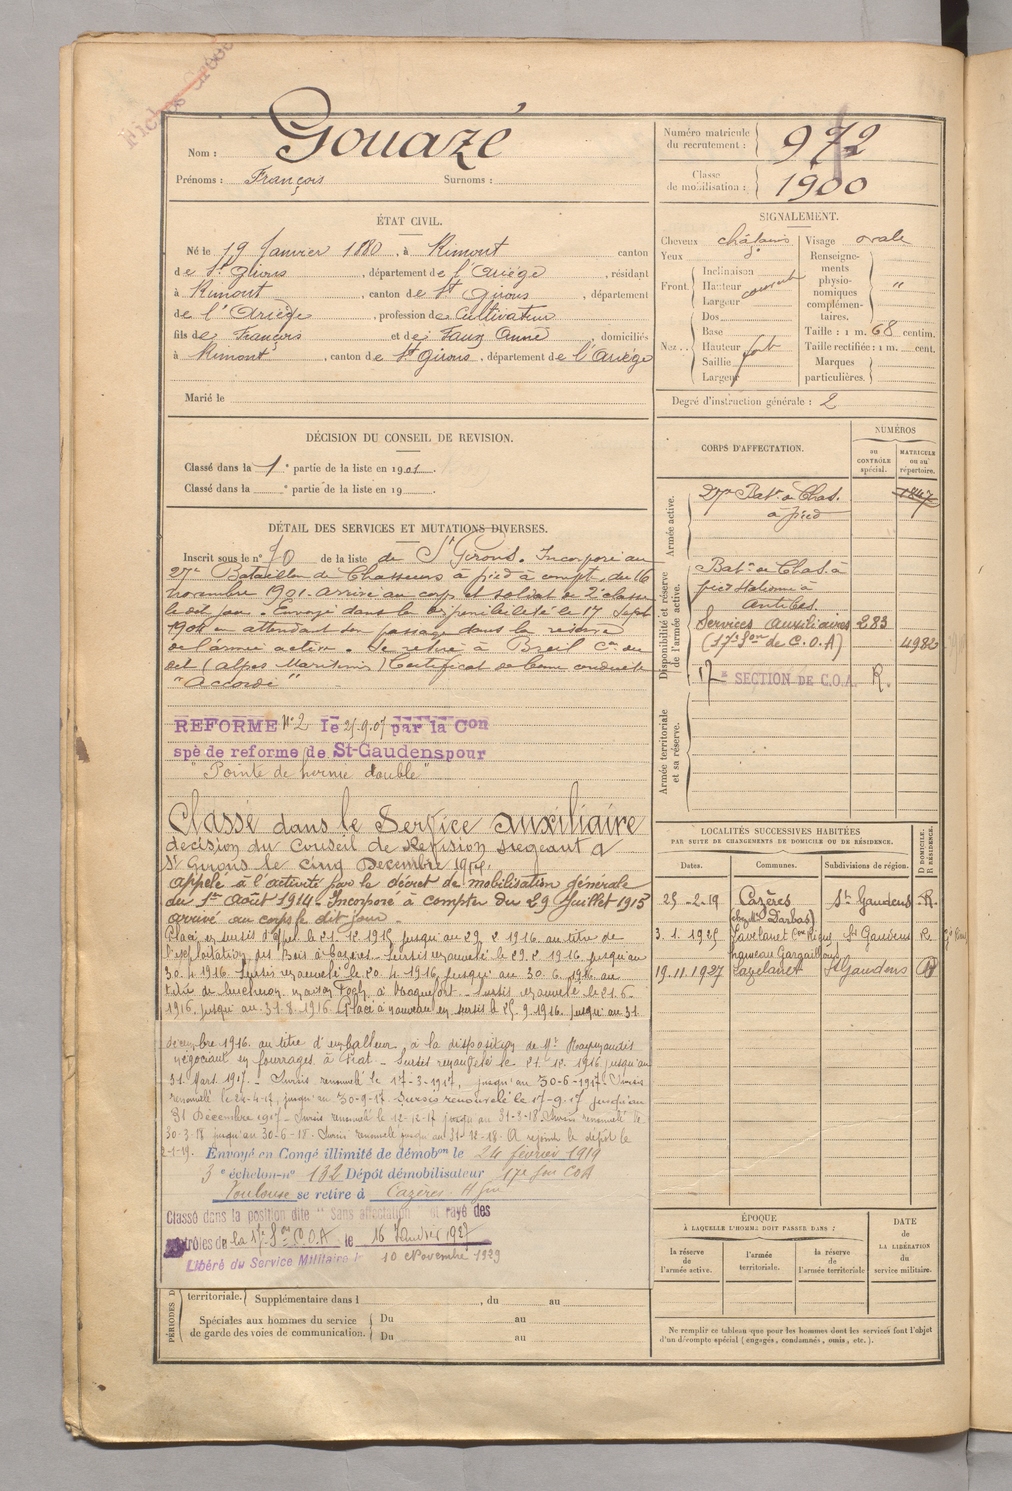 Fiches
Nom : Gouazé
Prénoms : François Surnoms :
Numéro matricule du recrutement : 972
Classe de mobilisation : 1900
ÉTAT CIVIL.
Né le 19 Janvier 1880, à Rimont canton
de St Girons, département de l'Ariège, résidant
à Rimont, canton de St Girons, département
de l'Ariège, profession de Cultivateur
fils de François et de Faux Anne, domiciliés
à Rimont, canton de St Girons, département de l'Ariège
Marié le
SIGNALEMENT.
Cheveux châtains Visage ovale
Yeux
Front. Inclinaison
Hauteur couvert
Largeur
Nez. Dos
Base
Hauteur fort
Saillie
Largeur
Renseignements physionomiques complémentaires. "
Taille : 1 m. 68 centim.
Taille rectifiée : 1 m. cent.
Marques particulières.
Degré d'instruction générale : 2
DÉCISION DU CONSEIL DE REVISION.
Classé dans la 1e partie de la liste en 1901.
Classé dans la e partie de la liste en 19
DÉTAIL DES SERVICES ET MUTATIONS DIVERSES.
Inscrit sous le n° 70 de la liste de St Girons. Incorporé au
27e Bataillon de Chasseurs à pied à compt. du 16
novembre 1901. Arrivé au corps et soldat de 2e classe
le dit jour. Envoyé dans la disponibilité le 17 Sept
1904 en attendant son passage dans la réserve
de l'armée active. Se retire à Breil Con du
dit (Alpes Maritimes) Certificat de bonne conduite
"Accordé"
REFORME N° 2 le 25.9.07 par la Con
spè de reforme de St-Gaudens pour
"Pointe de hernie double"
Classé dans le Service auxiliaire
décision du Conseil de Revision siégeant à
St Girons le cinq Décembre 1914.
Appelé à l'activité par le décret de mobilisation générale
du 1er Août 1914. Incorporé à compter du 29 Juillet 1915
arrivé au corps le dit jour.
Placé en sursis d'appel le 21.12.1915 jusqu'au 29.2.1916 au titre de
l'exploitation des Bois à Cazères. Sursis renouvelé le 29.2.1916 jusqu'au
30.4.1916. Sursis renouvelé le 20.4.1916 jusqu'au 30.6.1916 au
titre de bucheron à Roquefort. Sursis renouvelé le 21.6
1916 jusqu'au 31.8.1916. Placé à nouveau en sursis le 25.9.1916 jusqu'au 31
décembre 1916 au titre d'emballeur à la disposition de Mr
négociant en fourrages à. Sursis renouvelé le 21.12.1916 jusqu'au
31 Mars 1917. Sursis renouvelé le 17-3-1917, jusqu'au 30-6-1917. Sursis
renouvelé le 24-4-17, jusqu'au 30-9-17. Sursis renouvelé le 17-9-17 jusqu'au
31 Décembre 1917. Sursis renouvelé le 12-12-17 jusqu'au 31-3-18. Sursis renouvelé le
30-3-18 jusqu'au 30-6-18. Sursis renouvelé jusqu'au 31-12-18. A rejoint le dépôt le
2-1-19. Envoyé en Congé illimité de démobon le 24 février 1919
3e échelon no 132 Dépôt démobilisateur 17e Son COA
Toulouse se retire à Cazères H.Gne
Classé dans la position dite "Sans affectation" et rayé des
contrôles de la 17e Son C.O.A. le 16 Janvier 1927
Libéré du Service Militaire le 10 Novembre 1929
CORPS D'AFFECTATION.
NUMÉROS
au CONTRÔLE spécial.
MATRICULE ou au répertoire.
Armée active.
27e Baton de Chas. à pied 1847
Disponibilité et réserve de l'armée active.
Baton de Chas. à
pied stationné à
Antibes.
Services auxiliaires 283
(17e Son de C.O.A) 4982
17e SECTION DE C.O.A. R.
Armée territoriale et sa réserve.
LOCALITÉS SUCCESSIVES HABITÉES
PAR SUITE DE CHANGEMENTS DE DOMICILE OU DE RÉSIDENCE.
Dates. Communes. Subdivisions de région. D DOMICILE. R RÉSIDENCE.
25-2-19 Cazères St Gaudens R.
3.1.1925 Lavelanet St Gaudens R.
19.11.1927 Lavelanet St Gaudens D
ÉPOQUE
À LAQUELLE L'HOMME DOIT PASSER DANS :
la réserve de l'armée active.
l'armée territoriale.
la réserve de l'armée territoriale
DATE de LA LIBÉRATION du service militaire.
PÉRIODES D
territoriale. Supplémentaire dans l , du au
Spéciales aux hommes du service de garde des voies de communication. Du au
Du au
Ne remplir ce tableau que pour les hommes dont les services font l'objet
d'un décompte spécial (engagés, condamnés, omis, etc.).